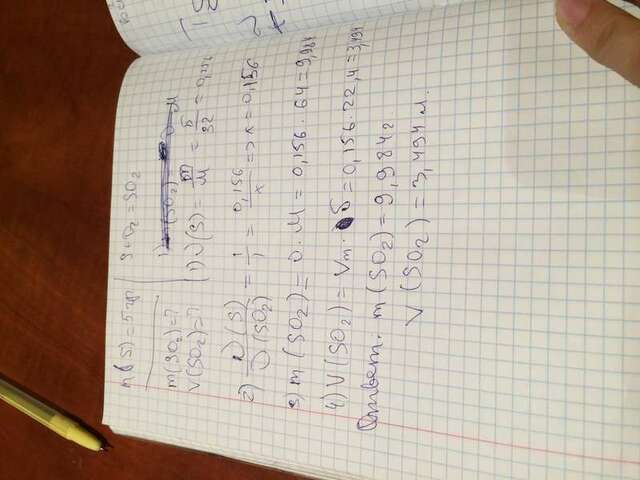 m(S)=5гр
m(SO₂)=?
V(SO₂)=?
S+O₂=SO₂
1) ν(S)=m/M=5/32=0,156
2) ν(S)/ν(SO₂)=1/1=0,156/x=>x=0,156
3) m(SO₂)=ν·M=0,156·64=9,984
4) V(SO₂)=Vm·ν=0,156·22,4=3,494
Ответ: m(SO₂)=9,984г
V(SO₂)=3,494л.